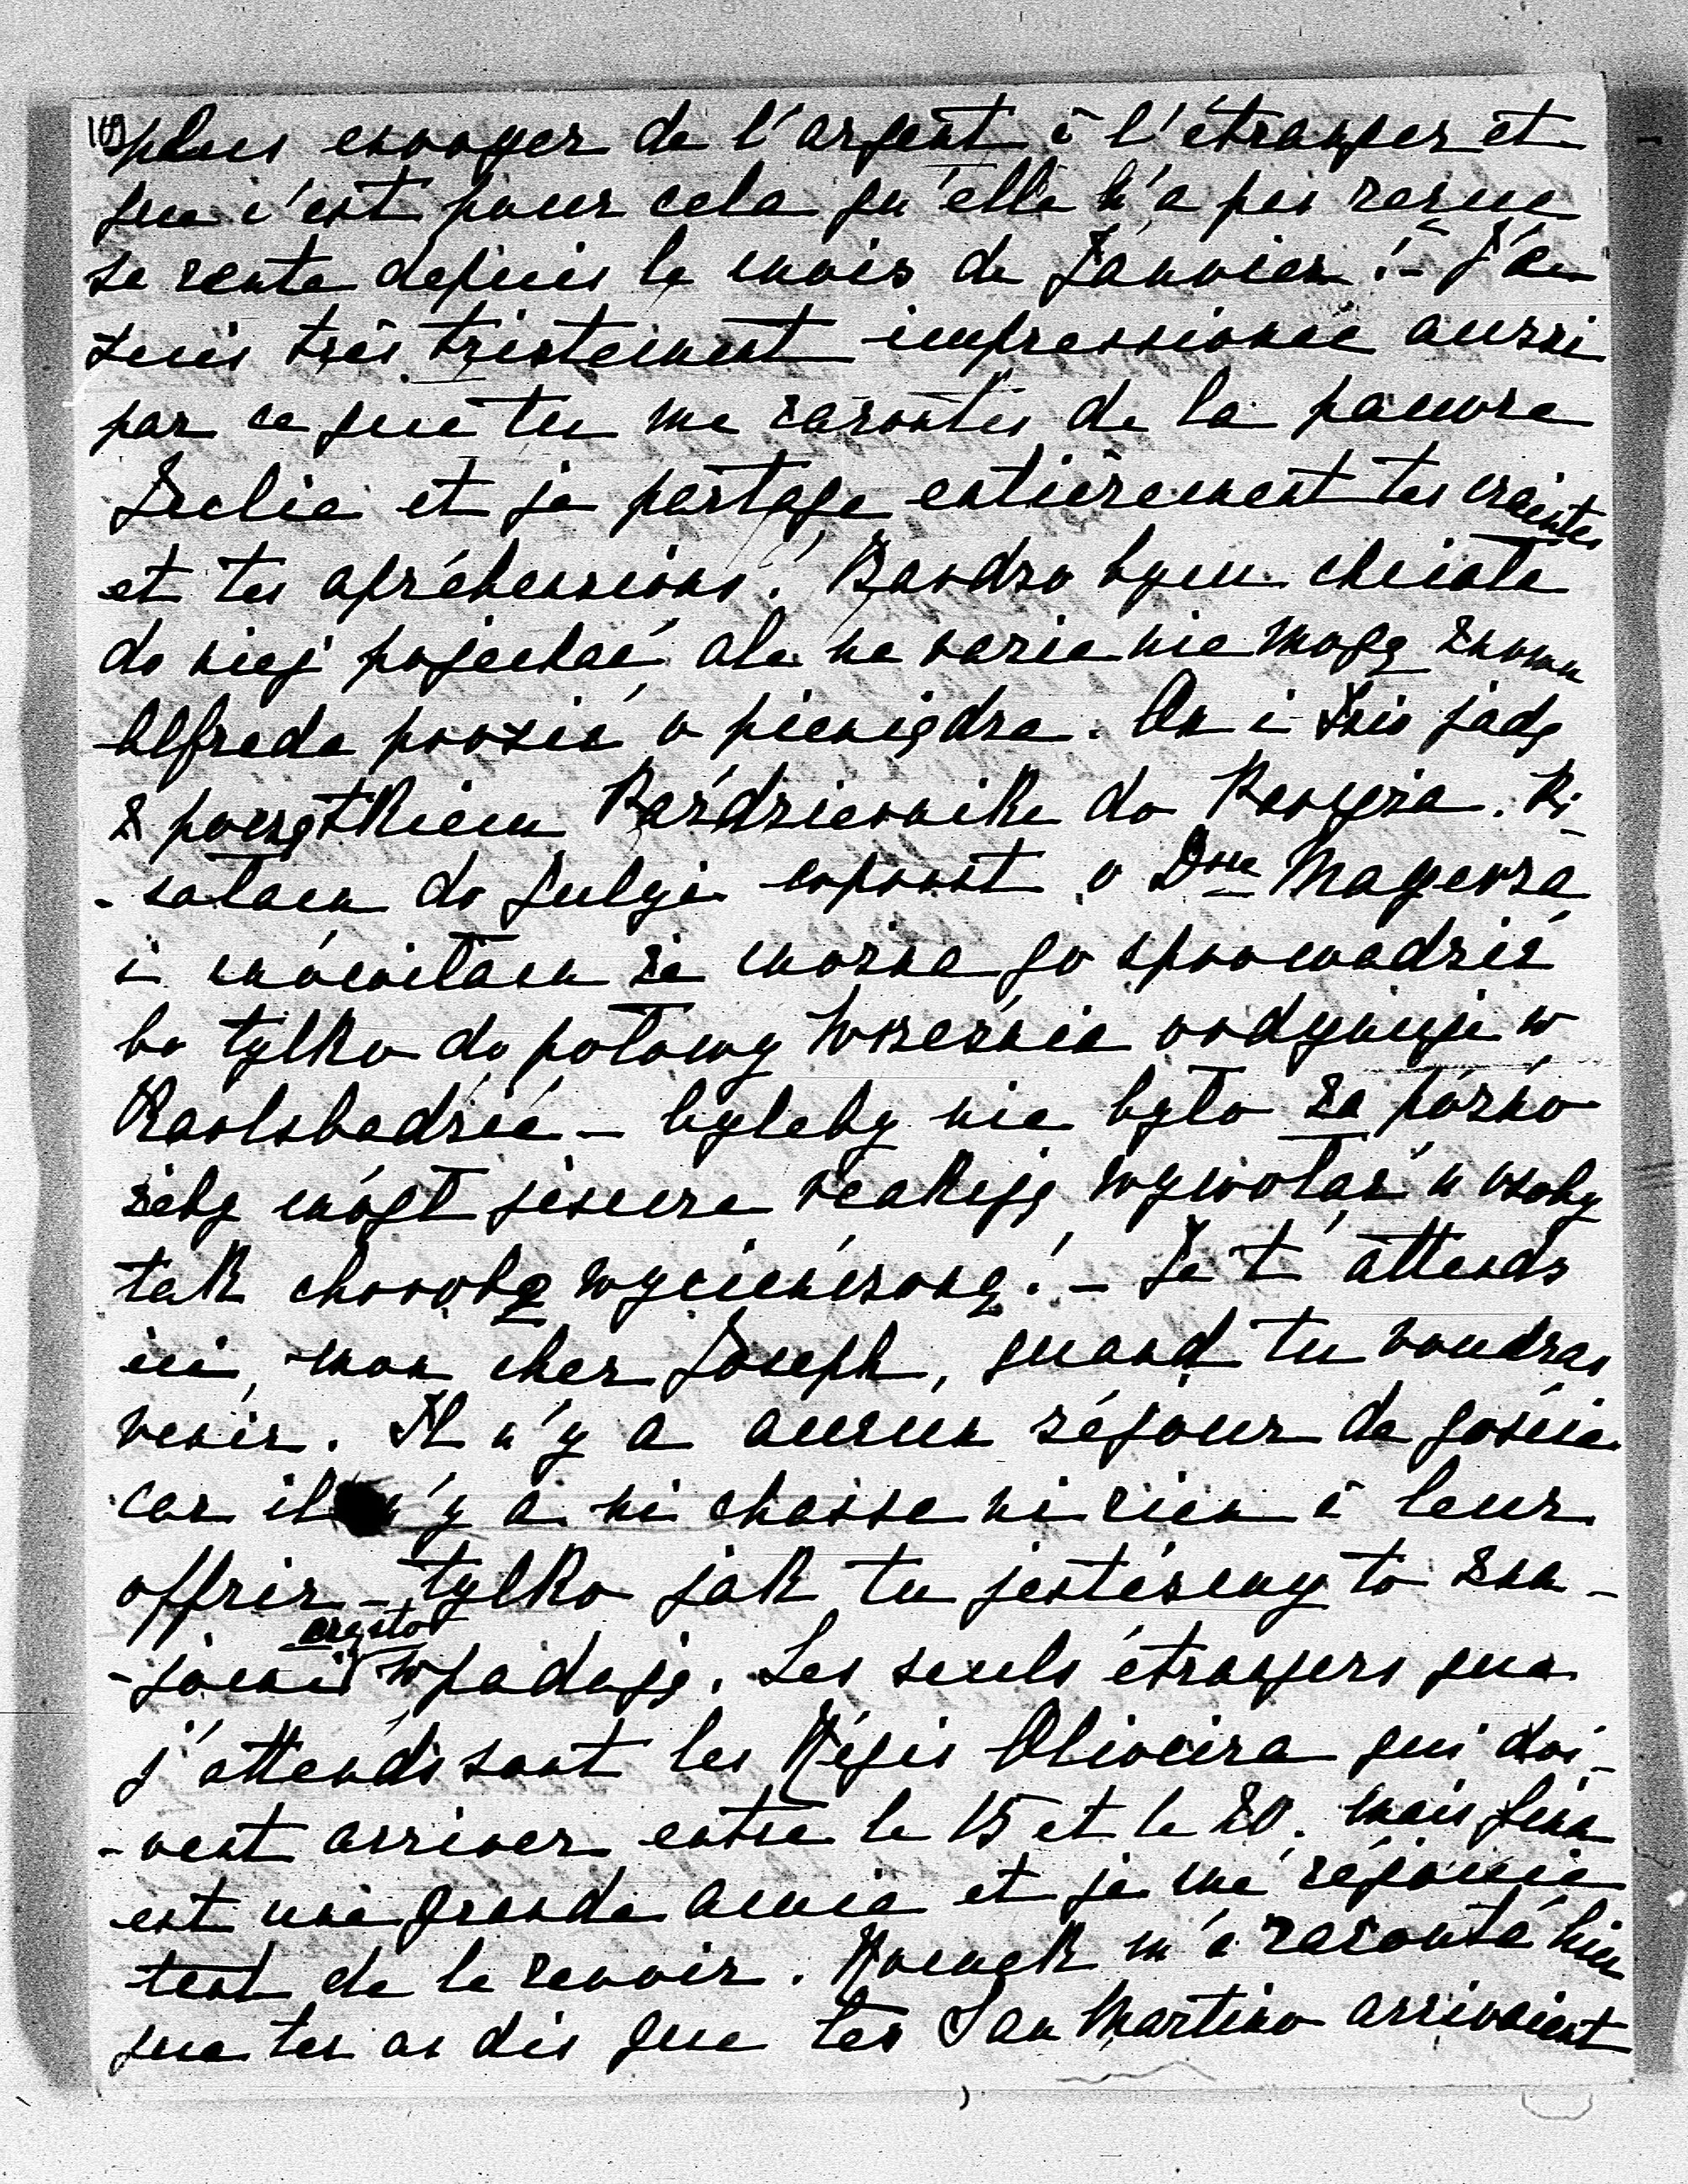 plus envoyer de l'argent à l'étranger et
que c'est pour cela qu'elle n'a pas reçue
sa rente depuis le mois de Janvier !- J'en
suis très tristement impressionée aussi
par ce que tu me racontes de la pauvre
Julie et je partage entièrement tes craintes
et tes apréhensions ! Bardzo bym chciała
do niej pojechać, ale na razie nie mogę znowu
Alfreda prosić o pieniądze. On i Iris jadą
z początkiem Października do Paryża. Pi-
-sałam do Julji exprest o Dra Mayerza
i mówiłam że można go sprowadzić
bo tylko do połowy Września ordynuje w
Karlsbadzie - byleby nie było za późno
żeby mógł jeszcze reakcję wywołać u osoby
tak chorobą wycieńczoną ! - Je t'attends
ici, mon cher Joseph, quand tu voudras
venir. Il n'y a aucun séjour de gości
car il n'y a ni chasse ni rien à leur
offrir - tylko jak tu jesteśmy to zna-
często
-jomi wpadają. Les seuls étrangers que
j'attends sont les Régis Oliveira qui doi-
-vent arriver entre le 15 et le 20. mais
est une grande amie et je me réjouie
tant de la revoir. m'a raconté hier
que tu as dis que les San Martino arrivaient